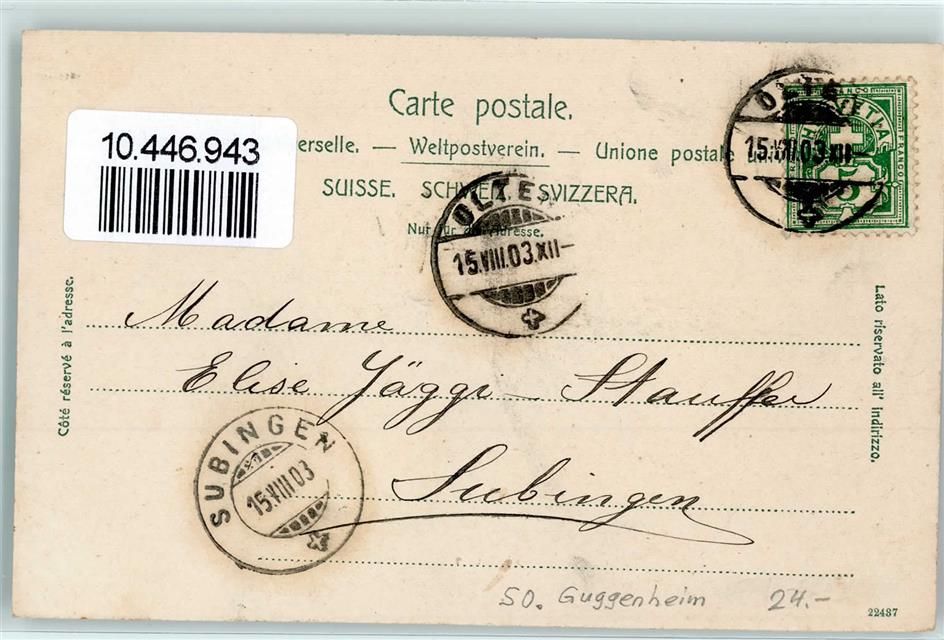 Carte postale.
10.446.943
erselle. — Weltpostverein. — Unione postale
SUISSE. SCHWEIZ. SVIZZERA.
Nur für die Adresse.
OLTEN
15.VIII.03.XII-
OLTEN
15.VIII.03.XII-
HELVETIA
FRANCO
FRANCO
5
Côté réservé à l'adresse.
Lato riservato all' indirizzo.
Madame
Elise Jäggi-Stauffer
Subingen
SUBINGEN
15.VIII.03
SO. Guggenheim 24.-
22487